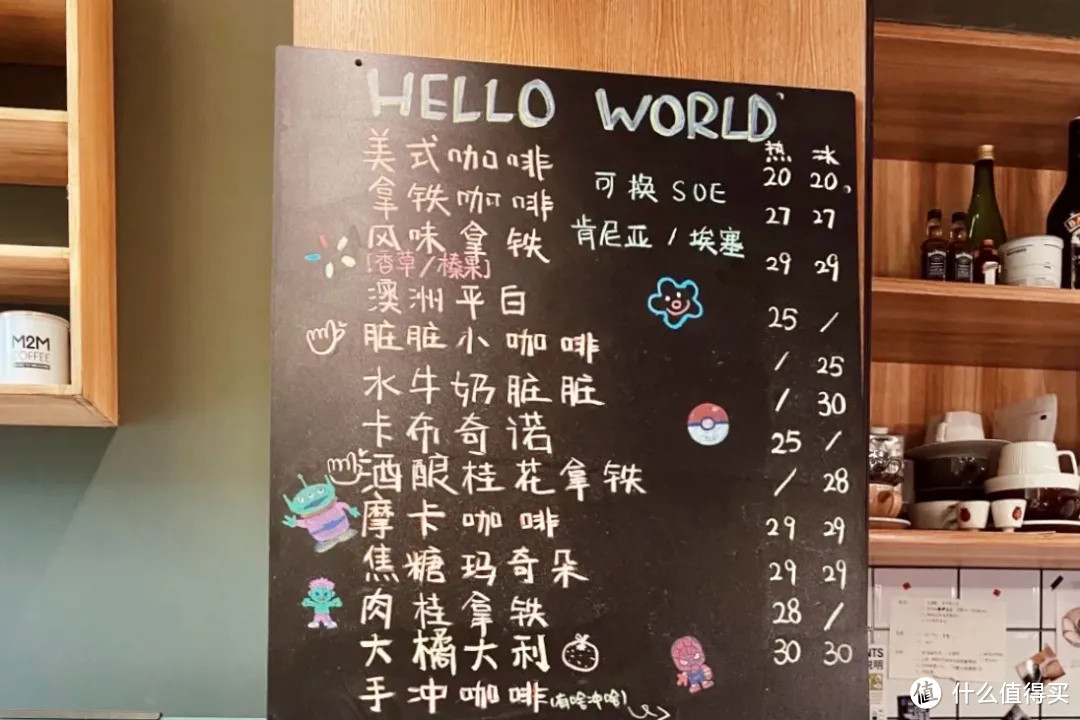 HELLO WORLD
热 冰
美式咖啡 20 20
可换SOE
拿铁咖啡 27 27
肯尼亚/埃塞
风味拿铁 29 29
[香草/榛果]
澳洲平白 25 /
脏脏小咖啡 / 25
水牛奶脏脏 / 30
卡布奇诺 25 /
酒酿桂花拿铁 / 28
摩卡咖啡 29 29
焦糖玛奇朵 29 29
肉桂拿铁 28 /
大橘大利 30 30
手冲咖啡(有啥冲啥)
M2M
COFFEE
NTS
说明
值 什么值得买